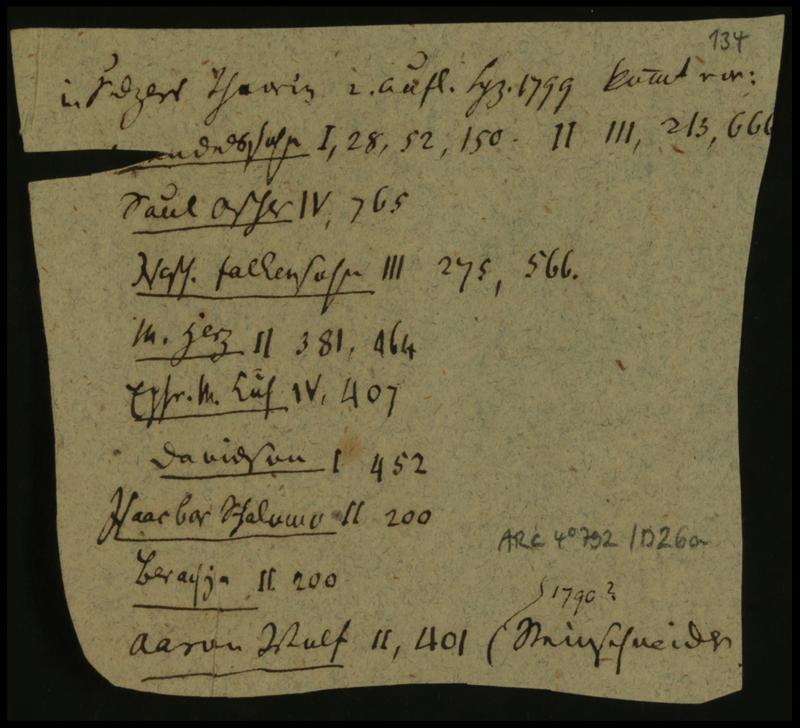 134
in Sulzers Theorie 2. Aufl. Lpz. 1799 kommt vor:
Mendelssohn I, 28, 52, 150. II III, 213, 666
Saul Ascher IV, 765
Falkensohn III 275, 566.
M. Herz II 381, 464
Ephr. M. Kuh IV, 407
Davidson I 452
Isaac bar Schalomo II 200
Berachja II 200
1790?
Aaron Wolf II, 401 (Steinschneider
ARC 4° 792 / D26a